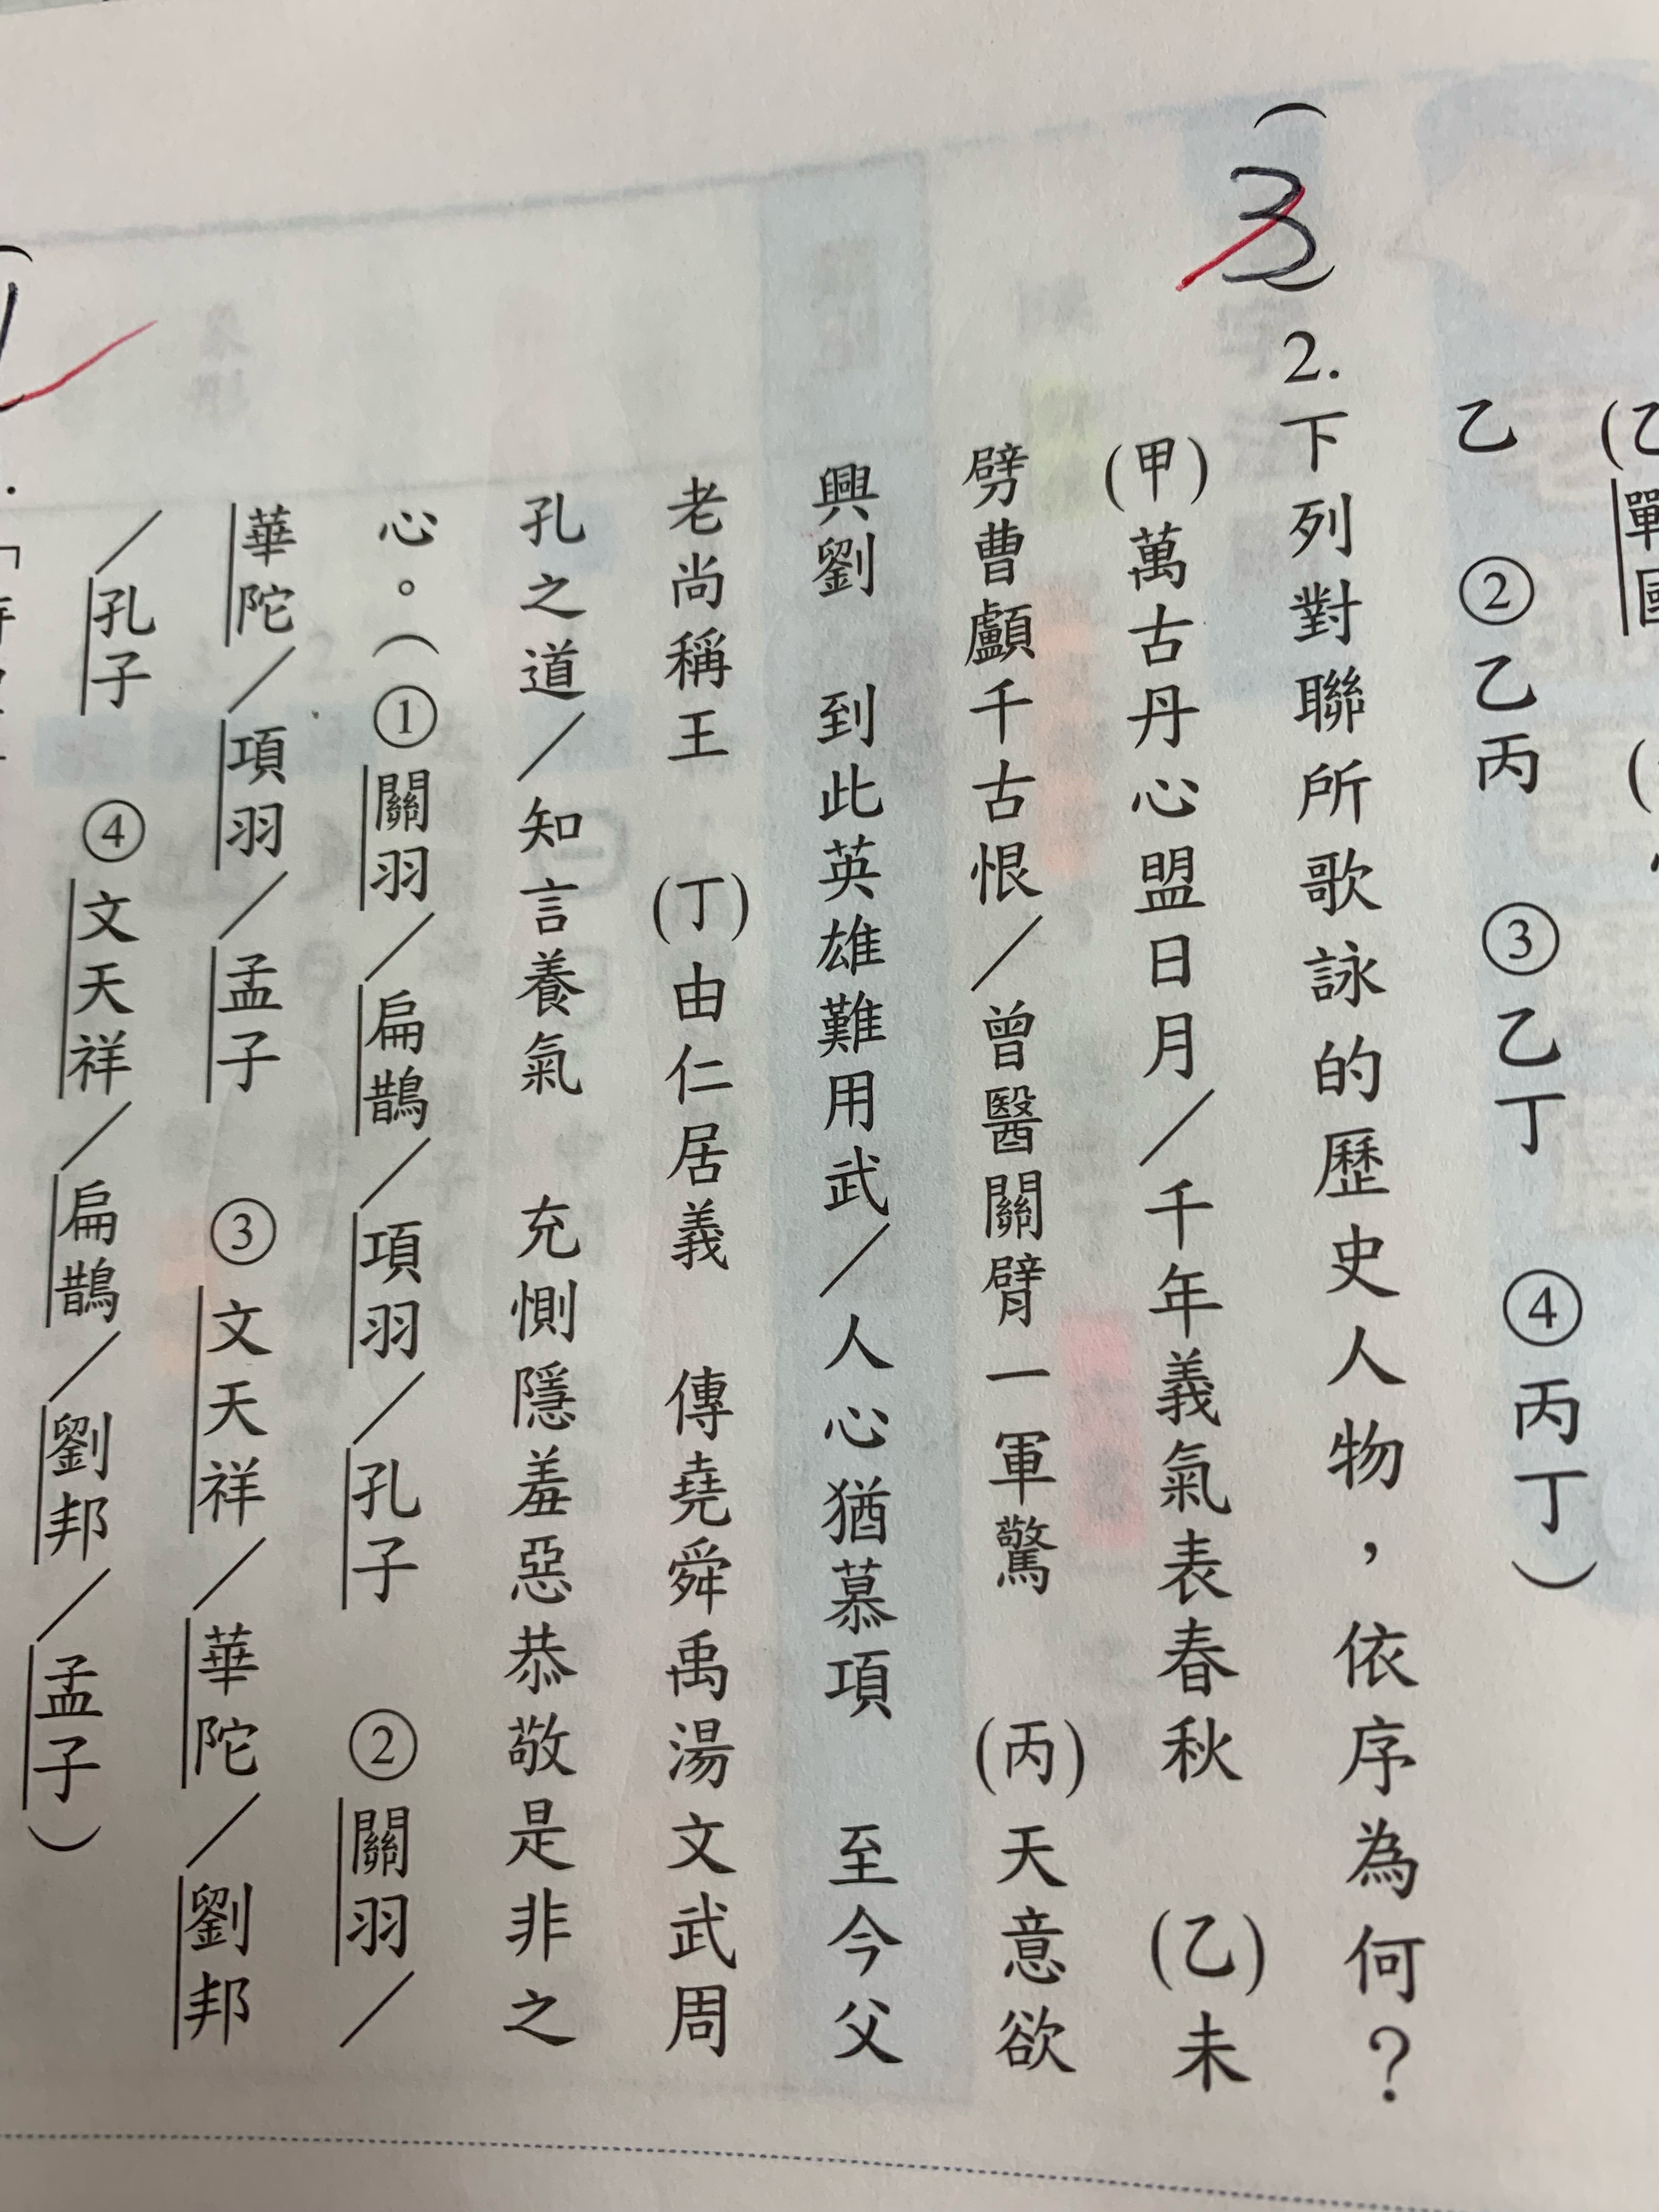 (乙)戰國
乙　②乙丙　③乙丁　④丙丁）
（3）2.下列對聯所歌詠的歷史人物，依序為何？
(甲)萬古丹心盟日月／千年義氣表春秋　(乙)未
劈曹顱千古恨／曾醫關臂一軍驚　(丙)天意欲
興劉　到此英雄難用武／人心猶慕項　至今父
老尚稱王　(丁)由仁居義　傳堯舜禹湯文武周
孔之道／知言養氣　充惻隱羞惡恭敬是非之
心。（①關羽／扁鵲／項羽／孔子　②關羽／
華陀／項羽／孟子　③文天祥／華陀／劉邦
／孔子　④文天祥／扁鵲／劉邦／孟子）